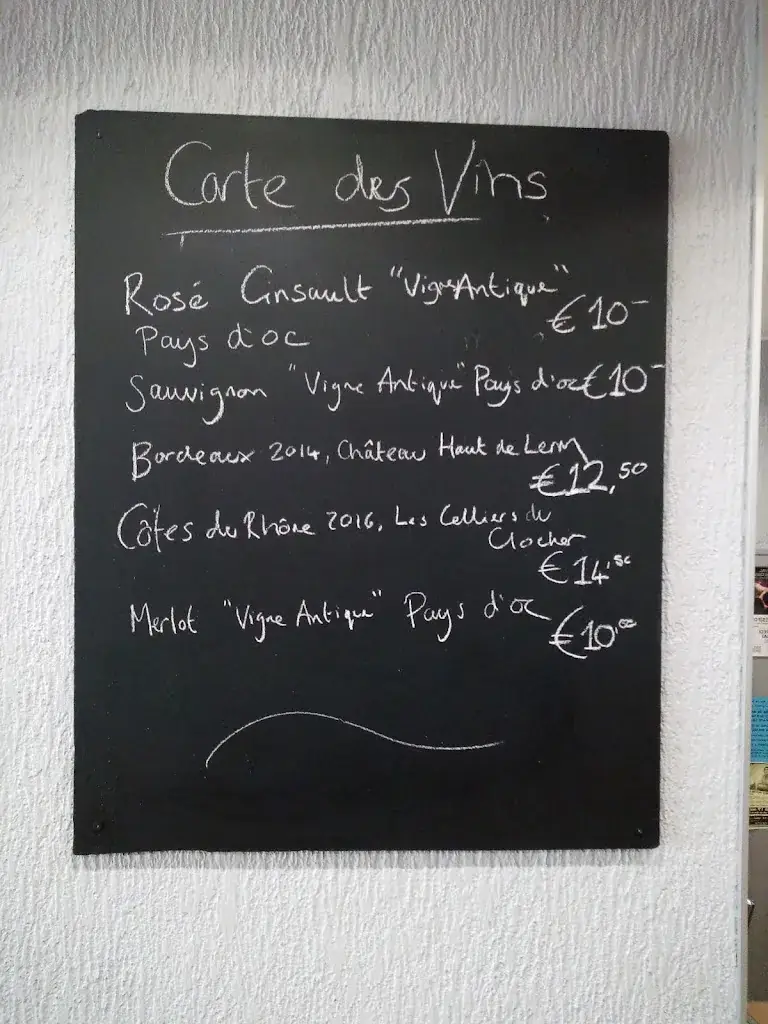 Carte des Vins
Rosé Cinsault "Vigne Antique"
€10-
Pays d'oc
Sauvignon "Vigne Antique" Pays d'oc €10-
Bordeaux 2014, Château Haut de Lerm
€12,50
Côtes du Rhône 2016, Les Celliers du
Clocher
€14,50
Merlot "Vigne Antique" Pays d'oc
€10,00